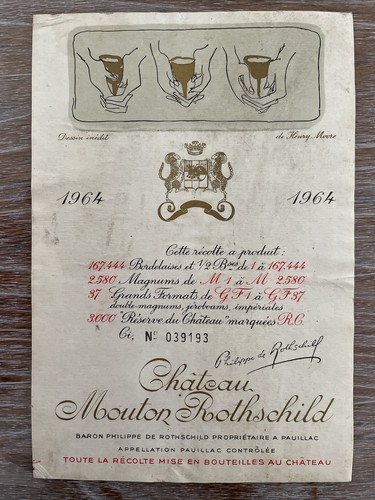 Dessin inédit de Henry Moore
1964 1964
Cette récolte a produit :
167.444 Bordelaises et 1/2 Bses de 1 à 167.444
2.580 Magnums de M 1 à M 2.580
37 Grands Formats de G F 1 à G F 37
double magnums, jeroboams, impériales
3.000 "Réserve du Château" marquées R.C.
Ci, No 039193
Philippe de Rothschild
Château
Mouton Rothschild
BARON PHILIPPE DE ROTHSCHILD PROPRIÉTAIRE A PAUILLAC
APPELLATION PAUILLAC CONTRÔLÉE
TOUTE LA RÉCOLTE MISE EN BOUTEILLES AU CHÂTEAU